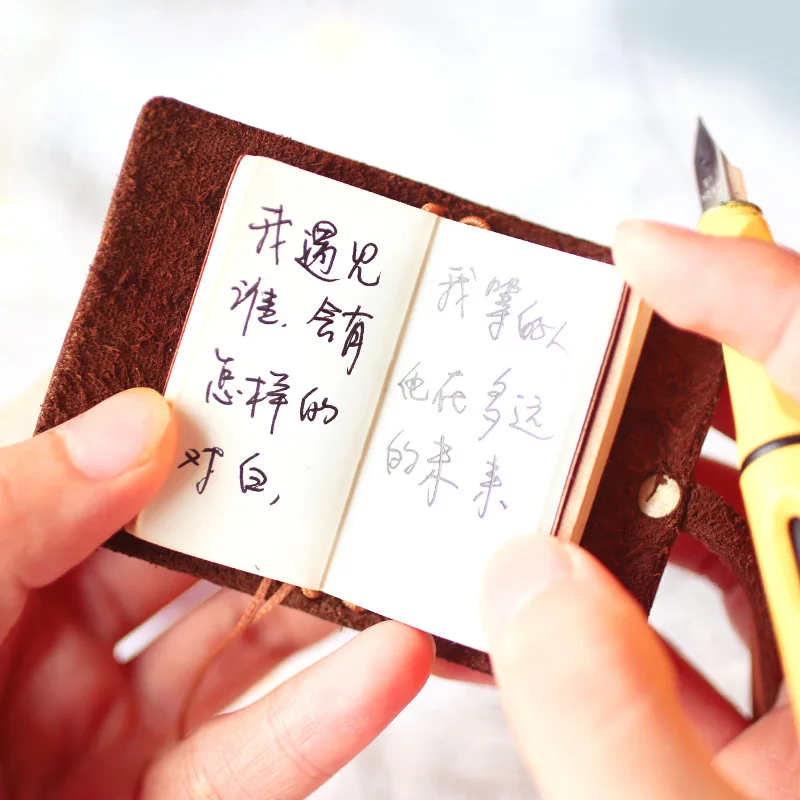 我遇见
谁.会有
怎样的
对白,
我等的人
他在多远
的未来